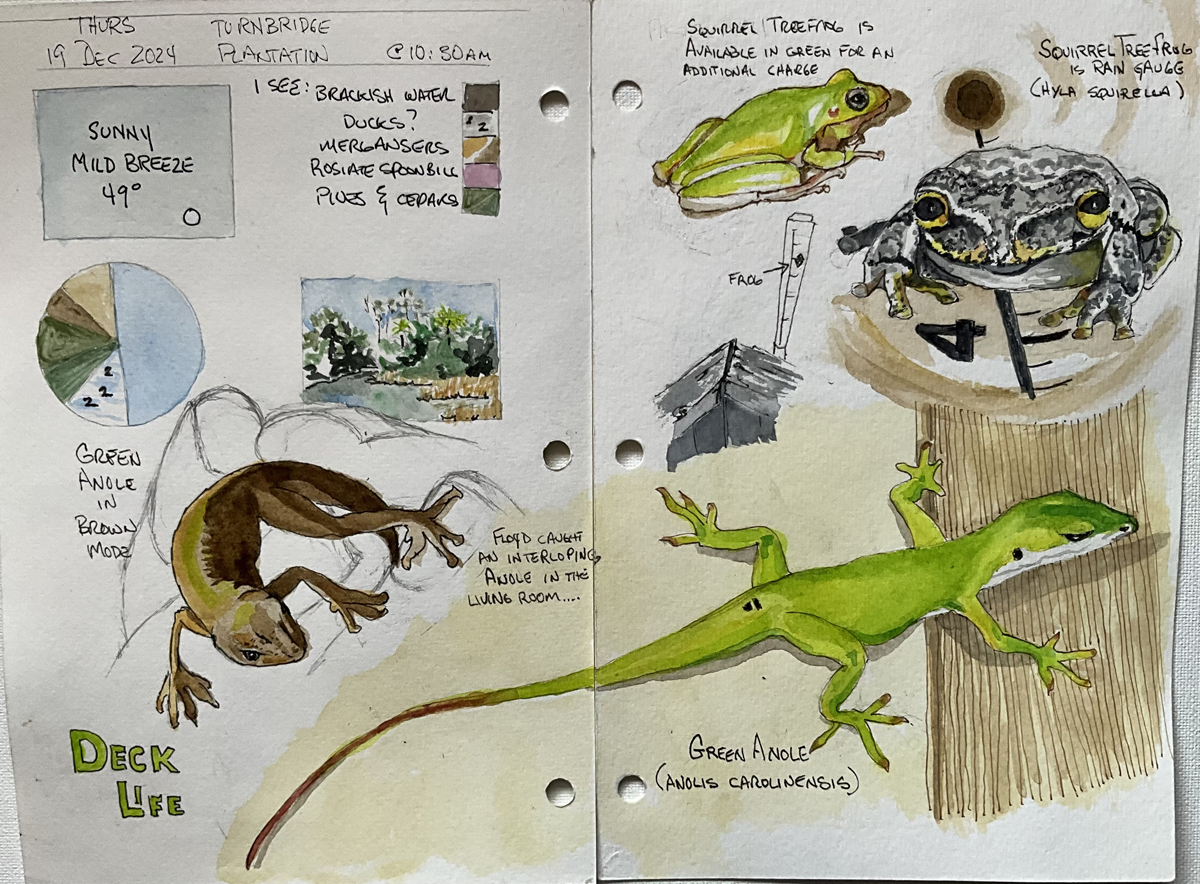 THURS TURNBRIDGE
19 DEC 2024 PLANTATION @ 10:30AM
SUNNY
MILD BREEZE
49°
I SEE: BRACKISH WATER
DUCKS?
MERGANSERS
ROSIATE SPOONBILL
PINES & CEDARS
2
2
2
GREEN
ANOLE
IN
BROWN
MODE
FLOYD CAUGHT
AN INTERLOPING
ANOLE IN THE
LIVING ROOM....
DECK
LIFE
SQUIRREL TREEFROG IS
AVAILABLE IN GREEN FOR AN
ADDITIONAL CHARGE
SQUIRREL TREEFROG
IS RAIN GAUGE
(HYLA SQUIRELLA)
FROG
4
GREEN ANOLE
(ANOLIS CAROLINENSIS)